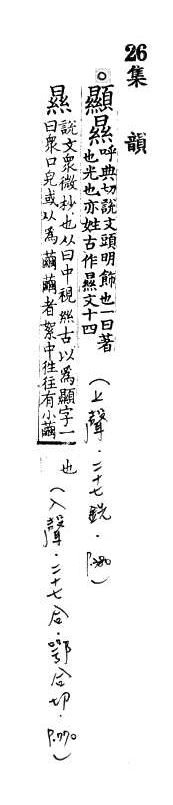 26集韻
○顯㬎呼典切說文頭明飾也一曰著
也光也亦姓古作㬎文十四
(上聲·二十七銑·P.380)
㬎說文眾微杪也从日中視絲古以為顯字一
曰眾口皃或以為繭繭者絮中徃往有小繭
也(入聲·二十七合·鄂合切·P.770)